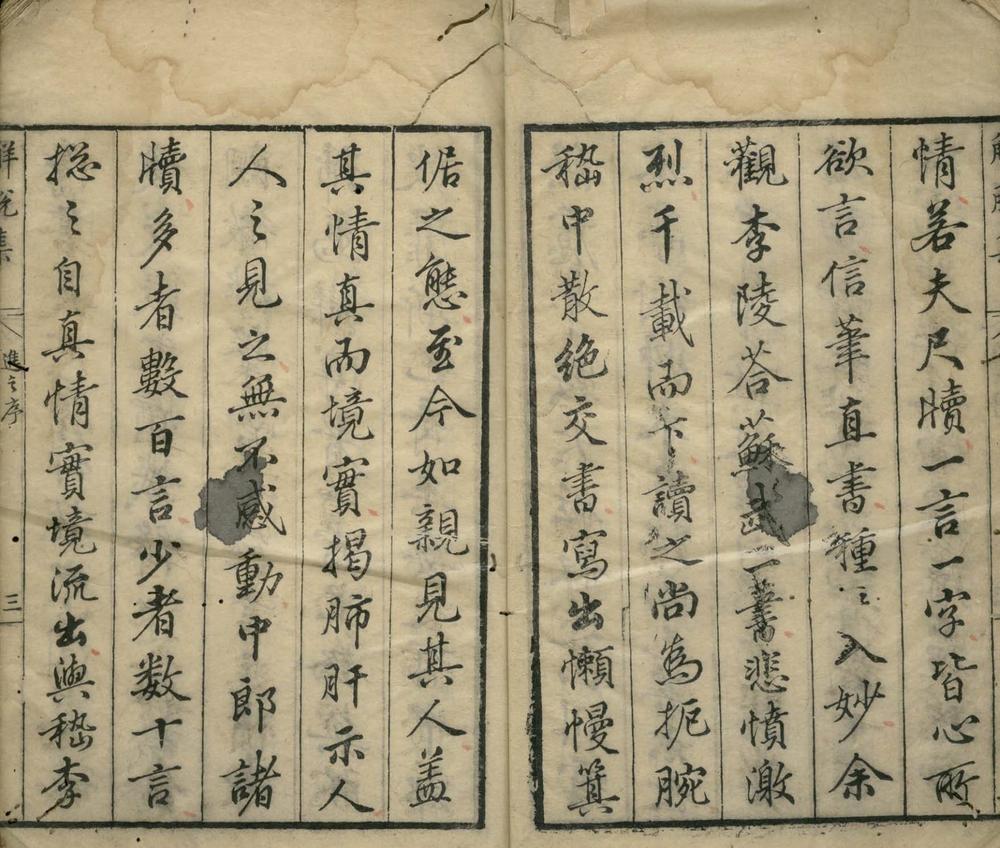 情若夫尺牘一言一字皆心所
欲言信筆直書種〻入妙余
觀李陵荅蘇武一書悲憤激
烈千載而下讀之尚為扼腕
嵇中散絶交書寫出懶慢箕
倨之態至今如親見其人盖
其情真而境實揭肺肝示人
人之見之無不感動中郎諸
牘多者數百言少者数十言
揔之自真情實境流出與嵇李
進之序
三